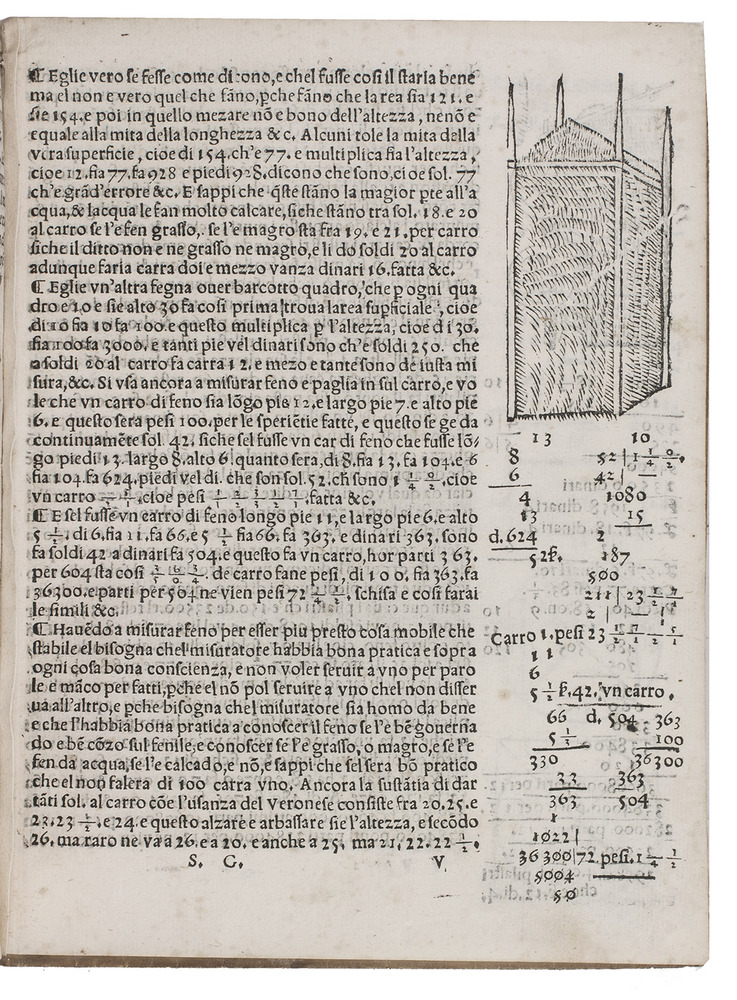 ¶ Eglie vero se fesse come dicono, e chel fusse cosi il staria bene
ma el non e vero quel che fãno, pche fãno che la rea sia 121. e
sie 154. e poi in quello mezare nõ e bono dell'altezza, nenõ e
equale alla mita della longhezza &c. Alcuni tole la mita della
vera superficie, cioe di 154. ch'e 77. e multiplica fia l'altezza,
cioe 12. fia 77. fa 928 e piedi 928. dicono che sono, cioe sol. 77
ch'e grãd'errore &c. E sappi che q̃ste stãno la magior pte all'a
cqua, & lacqua le fan molto calcare, siche stãno tra sol. 18. e 20
al carro se l'e fen grasso, se l'e magro sta fra 19. e 21. per carro
siche il ditto non e ne grasso ne magro, e li do soldi 20 al carro
adunque faria carra doi e mezzo vanza dinari 16. fatta &c.
¶ Eglie vn'altra fegna ouer barcotto quadro, che p ogni qua
dro e 10 e sie alto 30 fa cosi prima troua larea supficiale, cioe
di 10 fia 10 fa 100. e questo multiplica p l'altezza, cioe di 30.
fia 100 fa 3000. e tanti pie vel dinari sono ch'e soldi 250. che
a soldi 20 al carro fa carra 12. e mezo e tante sono de iusta mi
sura, &c. Si vsa ancora a misurar feno e paglia in sul carro, e vo
le che vn carro di feno sia lõgo pie 12. e largo pie 7. e alto pie
6. e questo sera pesi 100. per le sperietie fatte, e questo se ge da
continuamẽte sol. 42. siche sel fusse vn car di feno che fusse lõ/
go piedi 13. largo 8. alto 6. quanto sera, di 8. fia 13. fa 104. e 6
fia 104. fa 624. piedi vel di. che son sol. 52. ch sono 1 1/4 0/2. cioe
vn carro cioe pesi fatta &c.
¶ E sel fusse vn carro di feno longo pie 11, e largo pie 6. e alto
5 1/2. di 6. fia 11. fa 66. e 5 1/2 fia 66. fa 363. e dinari 363. sono
fa soldi 42 a dinari fa 504. e questo fa vn carro, hor parti 363.
per 604 sta cosi de carro fane pesi, di 100. fia 363. fa
36300. e parti per 504 ne vien pesi 72 schisa e cosi farai
le simili &c.
¶ Hauẽdo a misurar feno per esser piu presto cosa mobile che
stabile el bisogna chel misuratore habbia bona pratica e sopra
ogni cosa bona conscienza, e non voler seruir a vno per paro
le e mãco per fatti, pche el nõ pol seruire a vno chel non disser
ua all'altro, e pche bisogna chel misuratore sia homo da bene
e che l'habbia bona pratica a conoscer il feno se l'e bẽ gouerna
do e bẽ cõzo sul fenile, e conoscer se l'e grasso, o magro, e se l'e
fen da acqua, se l'e calcado, e nõ, e sappi che sel sera bõ pratico
che el non falera di 100 carra vno. Ancora la sustãtia di dar
tãti sol. al carro cõe l'usanza del Veronese consiste fra 20. 25. e
23. 23 1/2. e 24. e questo alzare e arbassare sie l'altezza, e secõdo
26. ma raro ne va a 26. e a 20. e anche a 25. ma 21. 22. 22 1/2.
S. G. V
13 10
8 52 | 1 1/4 0/2.
6 42 |
4 1080
13 15
d. 624 2
52 187
500
211 | 23
2 |
Carro 1. pesi 23
1 1
6
5 1/2 42. vn carro.
66 d. 504 - 363
5 1/2 100
330 36300
33 363
363 504
1
1022 |
36300 | 72. pesi.
5004
50